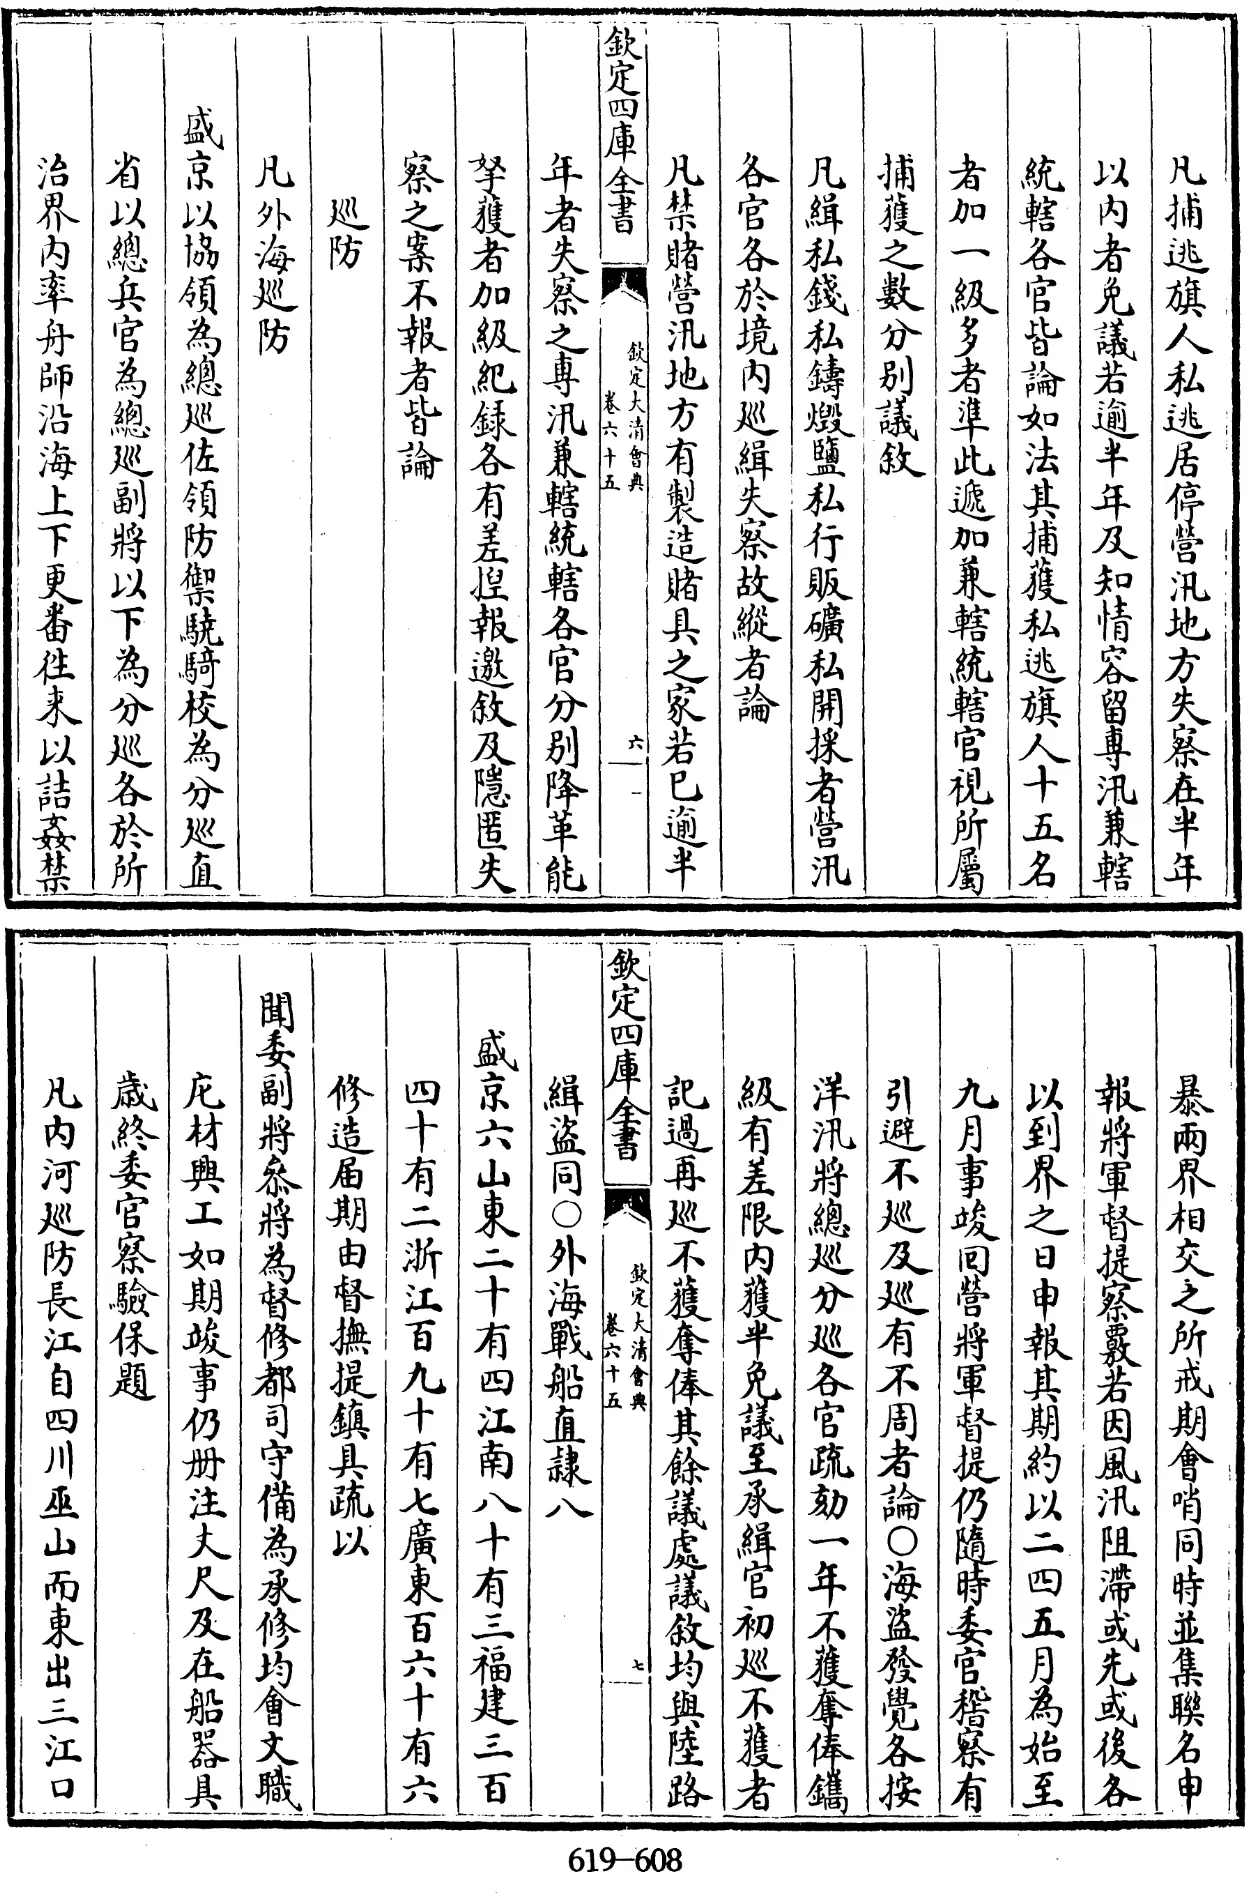 凡捕逃旗人私逃居停營汛地方失察在半年
以内者免議若逾半年及知情容留專汛兼轄
統轄各官皆論如法其捕獲私逃旗人十五名
者加一級多者準此遞加兼轄統轄官視所屬
捕獲之數分別議敘
凡緝私錢私鑄燬鹽私行販礦私開採者營汛
各官各於境内巡緝失察故縱者論
凡禁賭營汛地方有製造賭具之家若已逾半
欽定四庫全書
欽定大清會典
卷六十五
六
年者失察之專汛兼轄統轄各官分別降革能
拏獲者加級紀録各有差捏報邀敘及隱匿失
察之案不報者皆論
巡防
凡外海巡防
盛京以協領為總巡佐領防禦驍騎校為分巡直
省以總兵官為總巡副將以下為分巡各於所
治界内率舟師沿海上下更番徃來以詰姦禁
暴兩界相交之所戒期會哨同時並集聯名申
報將軍督提察覈若因風汛阻滯或先或後各
以到界之日申報其期約以二四五月為始至
九月事竣回營將軍督提仍隨時委官稽察有
引避不巡及巡有不周者論○海盜發覺各按
洋汛將總巡分巡各官疏劾一年不獲奪俸鐫
級有差限内獲半免議至承緝官初巡不獲者
記過再巡不獲奪俸其餘議處議敘均與陸路
欽定四庫全書
欽定大清會典
卷六十五
七
緝盜同○外海戰船直隸八
盛京六山東二十有四江南八十有三福建三百
四十有二浙江百九十有七廣東百六十有六
修造届期由督撫提鎮具疏以
聞委副將叅將為督修都司守備為承修均會文職
庀材興工如期竣事仍册注丈尺及在船器具
歳終委官察驗保題
凡内河巡防長江自四川巫山而東出三江口
619-608